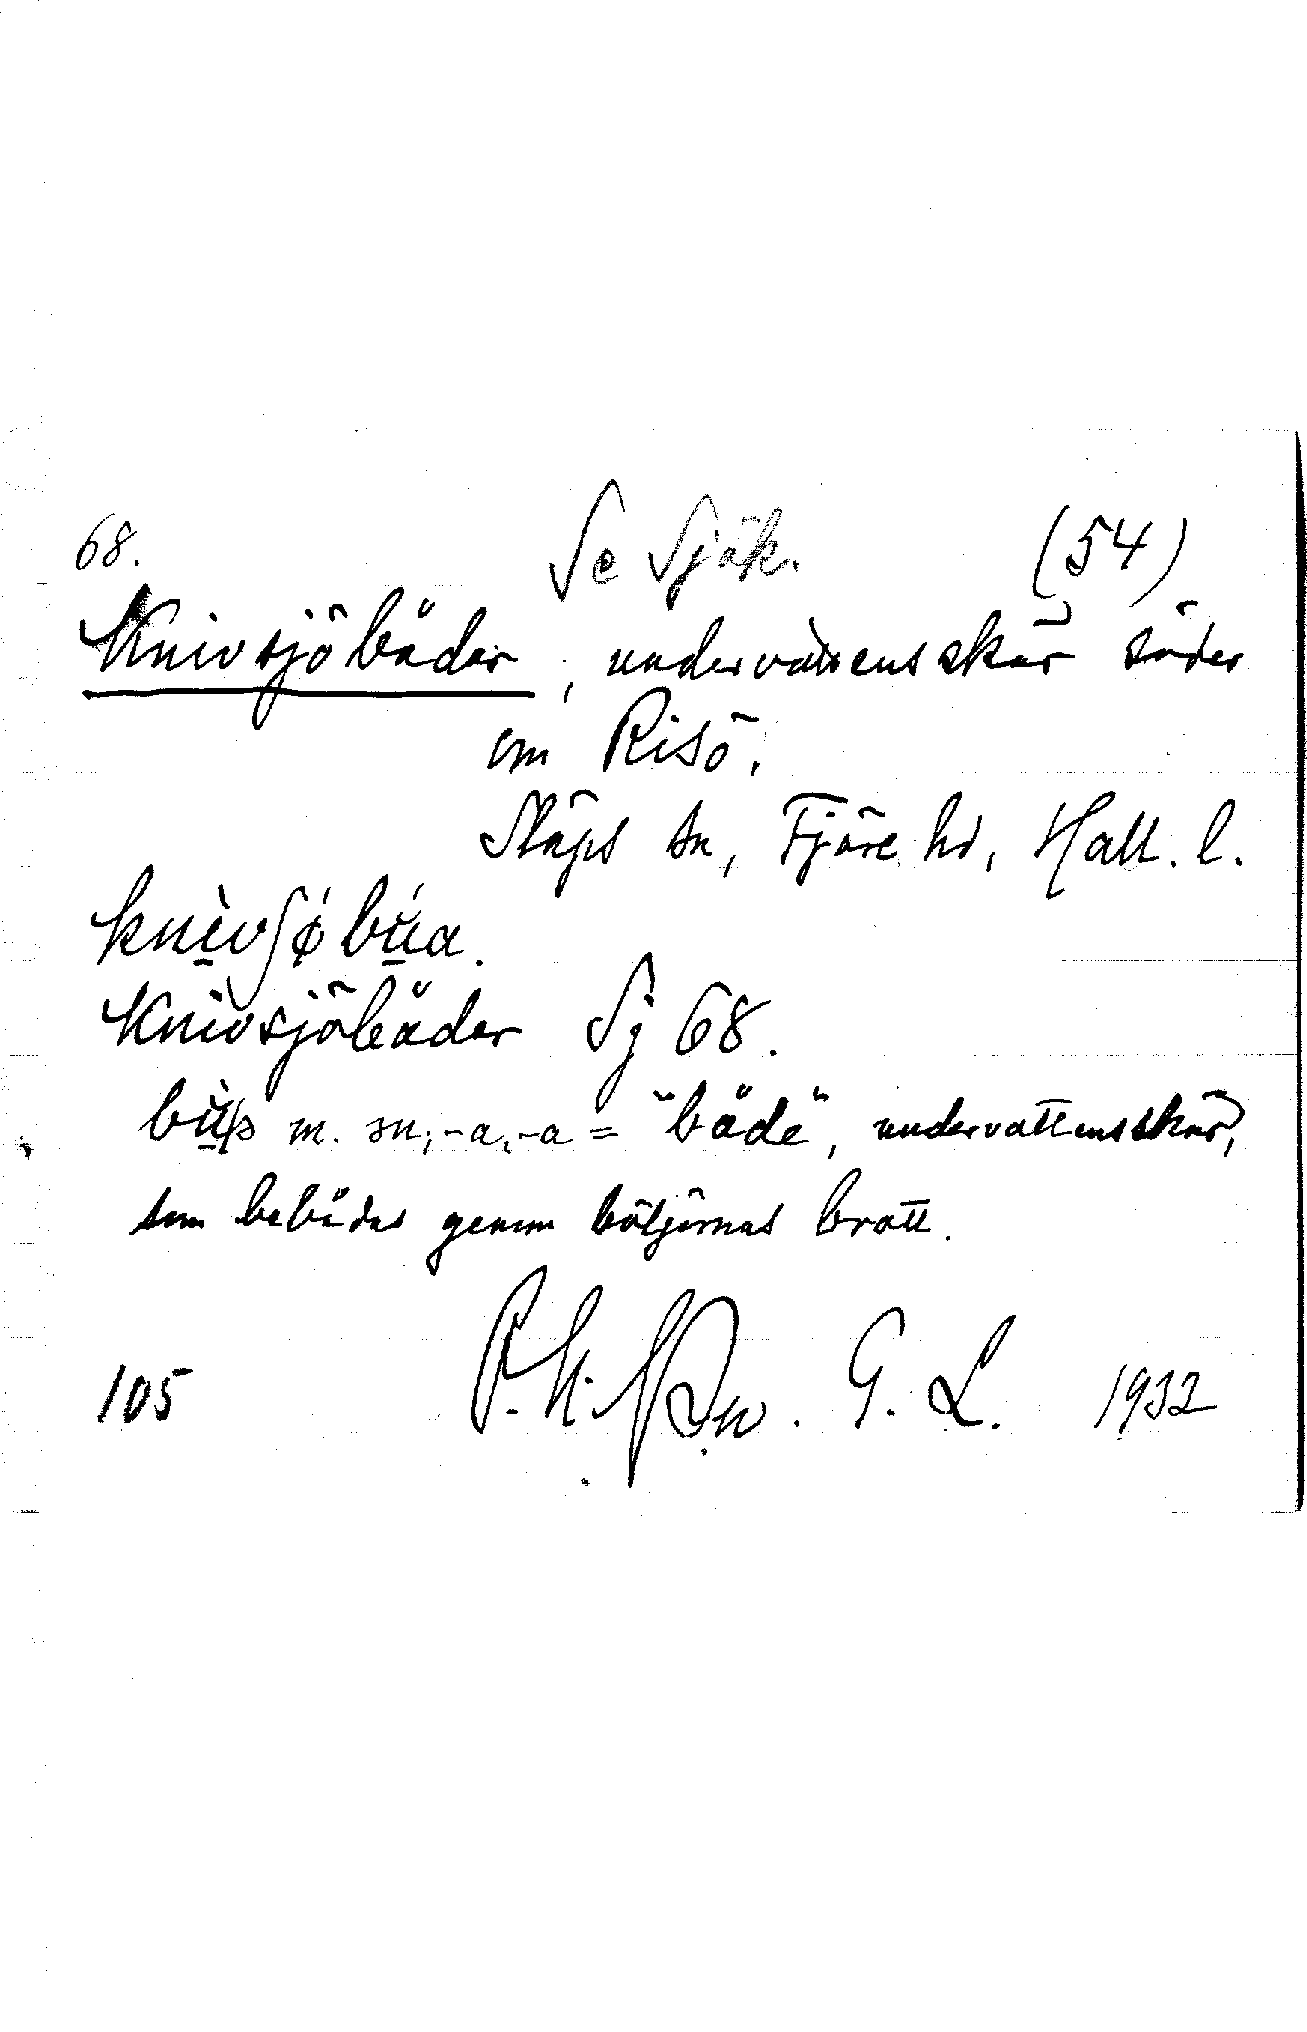 68. Se Sjök. (54)
Knivsjöbåder, undervattensskär söder
om Risö.
Släps sn, Fjäre hd, Hall. l.
Knivsjöbåder Sj 68.
m. "både", undervattensskär,
som bebådas genom böljornas brott.
105 G. L. 1932